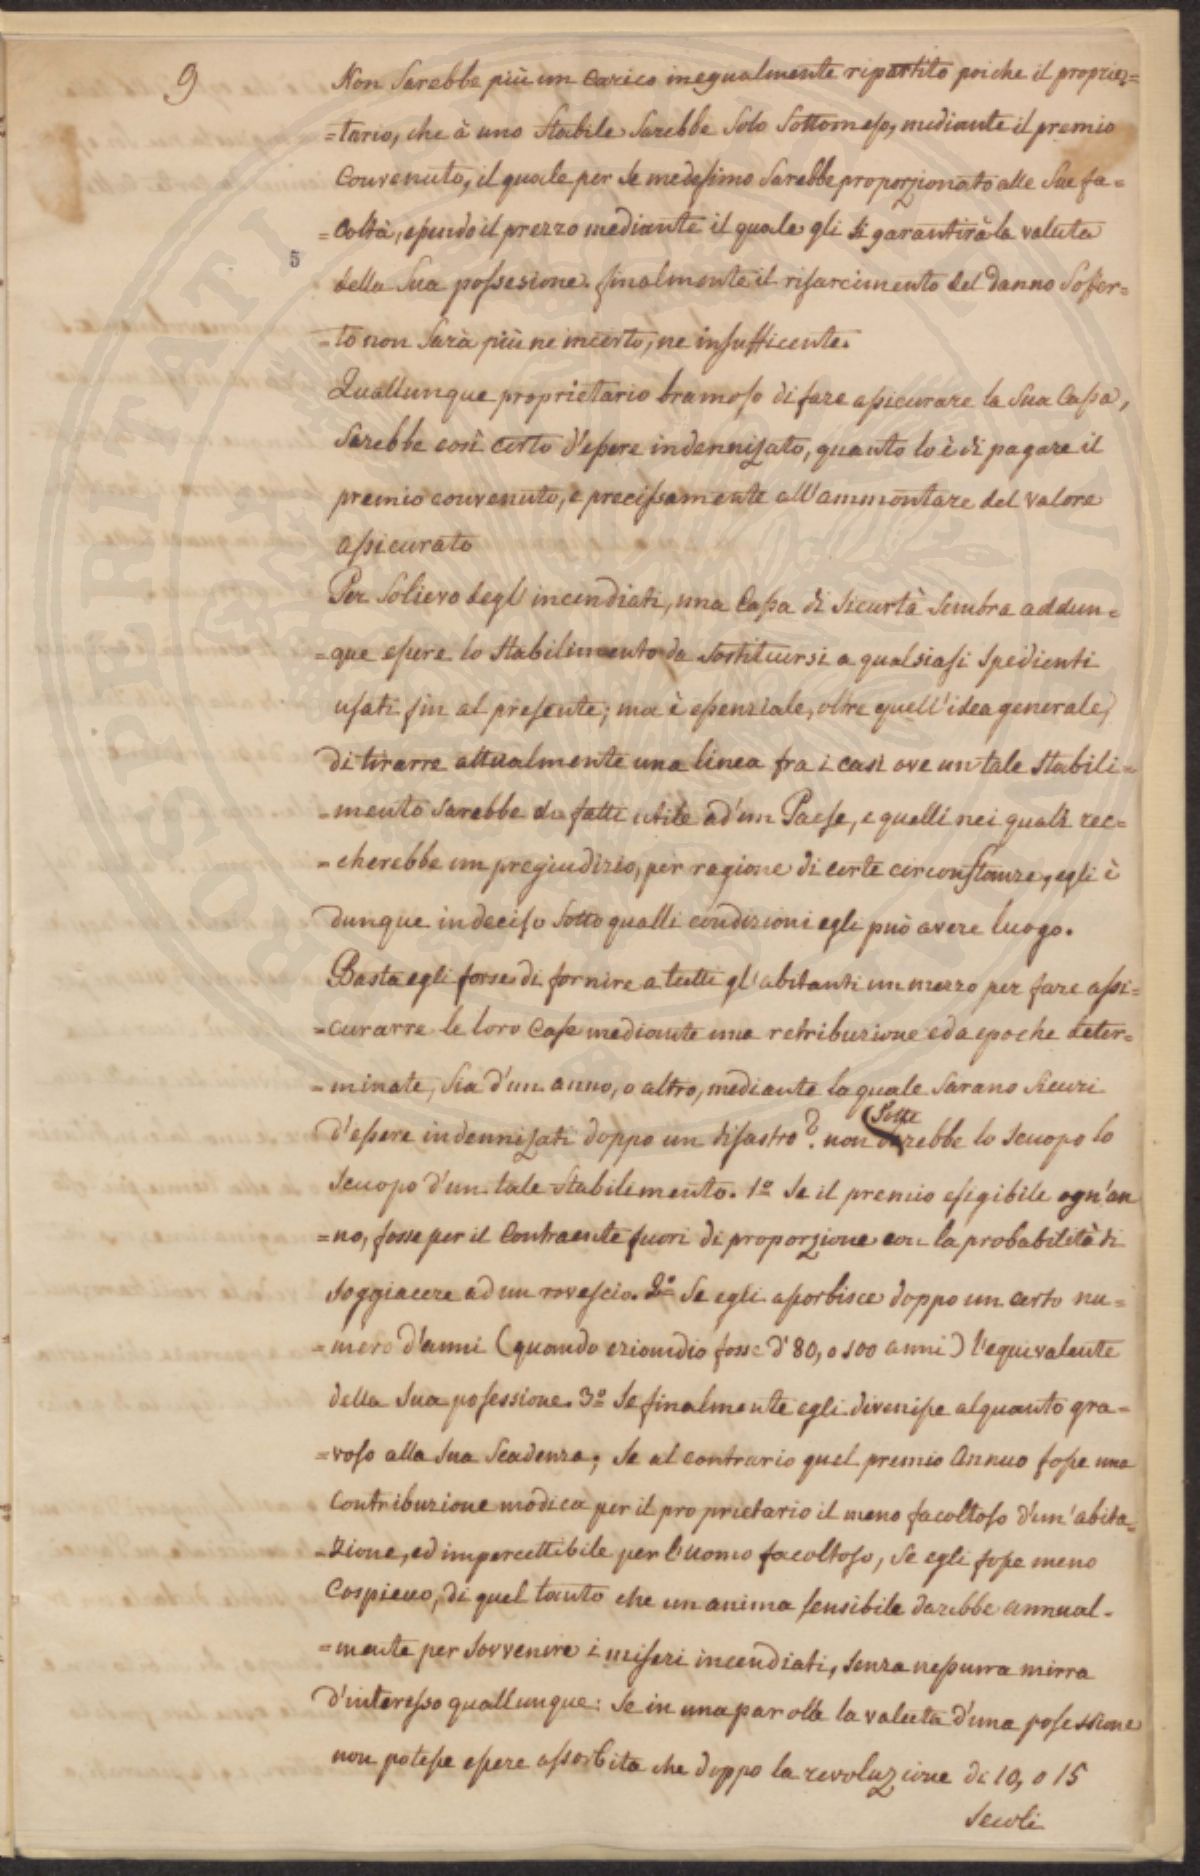 9
Non sarebbe più un carico inegualmente ripartito poiche il proprie=
=tario, che à uno stabile sarebbe solo sottomesso, mediante il premio
convenuto, il quale per se medessimo sarebbe proporzionato alle sue fa=
=coltà, essendo il prezzo mediante il quale gli si garantirà la valuta
5
della sua possesione. finalmente il risarcimento del danno soffer=
=to non sarà più ne incerto, ne insufficente.
Quallunque proprietario bramoso di fare assicurare la sua Cassa,
sarebbe così certo d'essere indennisato, quanto lo è di pagare il
premio convenuto, e precissamente all'ammontare del valore
assicurato
Per solievo degl'incendiati, una Cassa di sicurtà sembra addun=
=que essere lo stabilimento da sostituirsi a qualsiasi spedienti
usati fin al presente; ma è essenziale, oltre quell'idea generale,
di tirarre attualmente una linea fra i casi ove un tale stabili=
=mento sarebbe da fatti utile ad'un Paese, e quelli nei quali rec=
=cherebbe un pregiudizio, per ragione di certe circonstanze, egli è
dunque indeciso sotto qualli condizioni egli può avere luogo.
Basta egli forse di fornire a tutti gl'abitanti un mezzo per fare assi=
=curarre le loro Case mediante una retribuzione ed a epoche deter=
=minate, sia d'un anno, o altro, mediante la quale sarano sicuri
d'essere indennisati doppo un disastro? non sarebbe lo scuopo lo
scuopo d'un tale stabilimento. 1º se il premio esigibile ogn'an
=no, fosse per il contraente fuori di proporzione con la probabilità di
soggiacere ad un rovescio. 2º se egli assorbisce doppo un certo nu=
=mero d'anni (quando eziandio fosse d'80, o 100 anni) l'equivalente
della sua posessione. 3º se finalmente egli divenisse alquanto gra=
=voso alla sua scadenza; se al contrario quel premio annuo fosse una
contribuzione modica per il proprietario il meno facoltoso d'un'abita=
=zione, ed impercettibile per l'uomo facoltoso, se egli fosse meno
cospicuo, di quel tanto che un anima sensibile darebbe annual=
=mente per sovvenire i miseri incendiati, senza nessurra mirra
d'interesso quallunque: se in una parolla la valuta d'una posessione
non potesse essere assorbita che doppo la revoluzione di 10, o 15
secoli